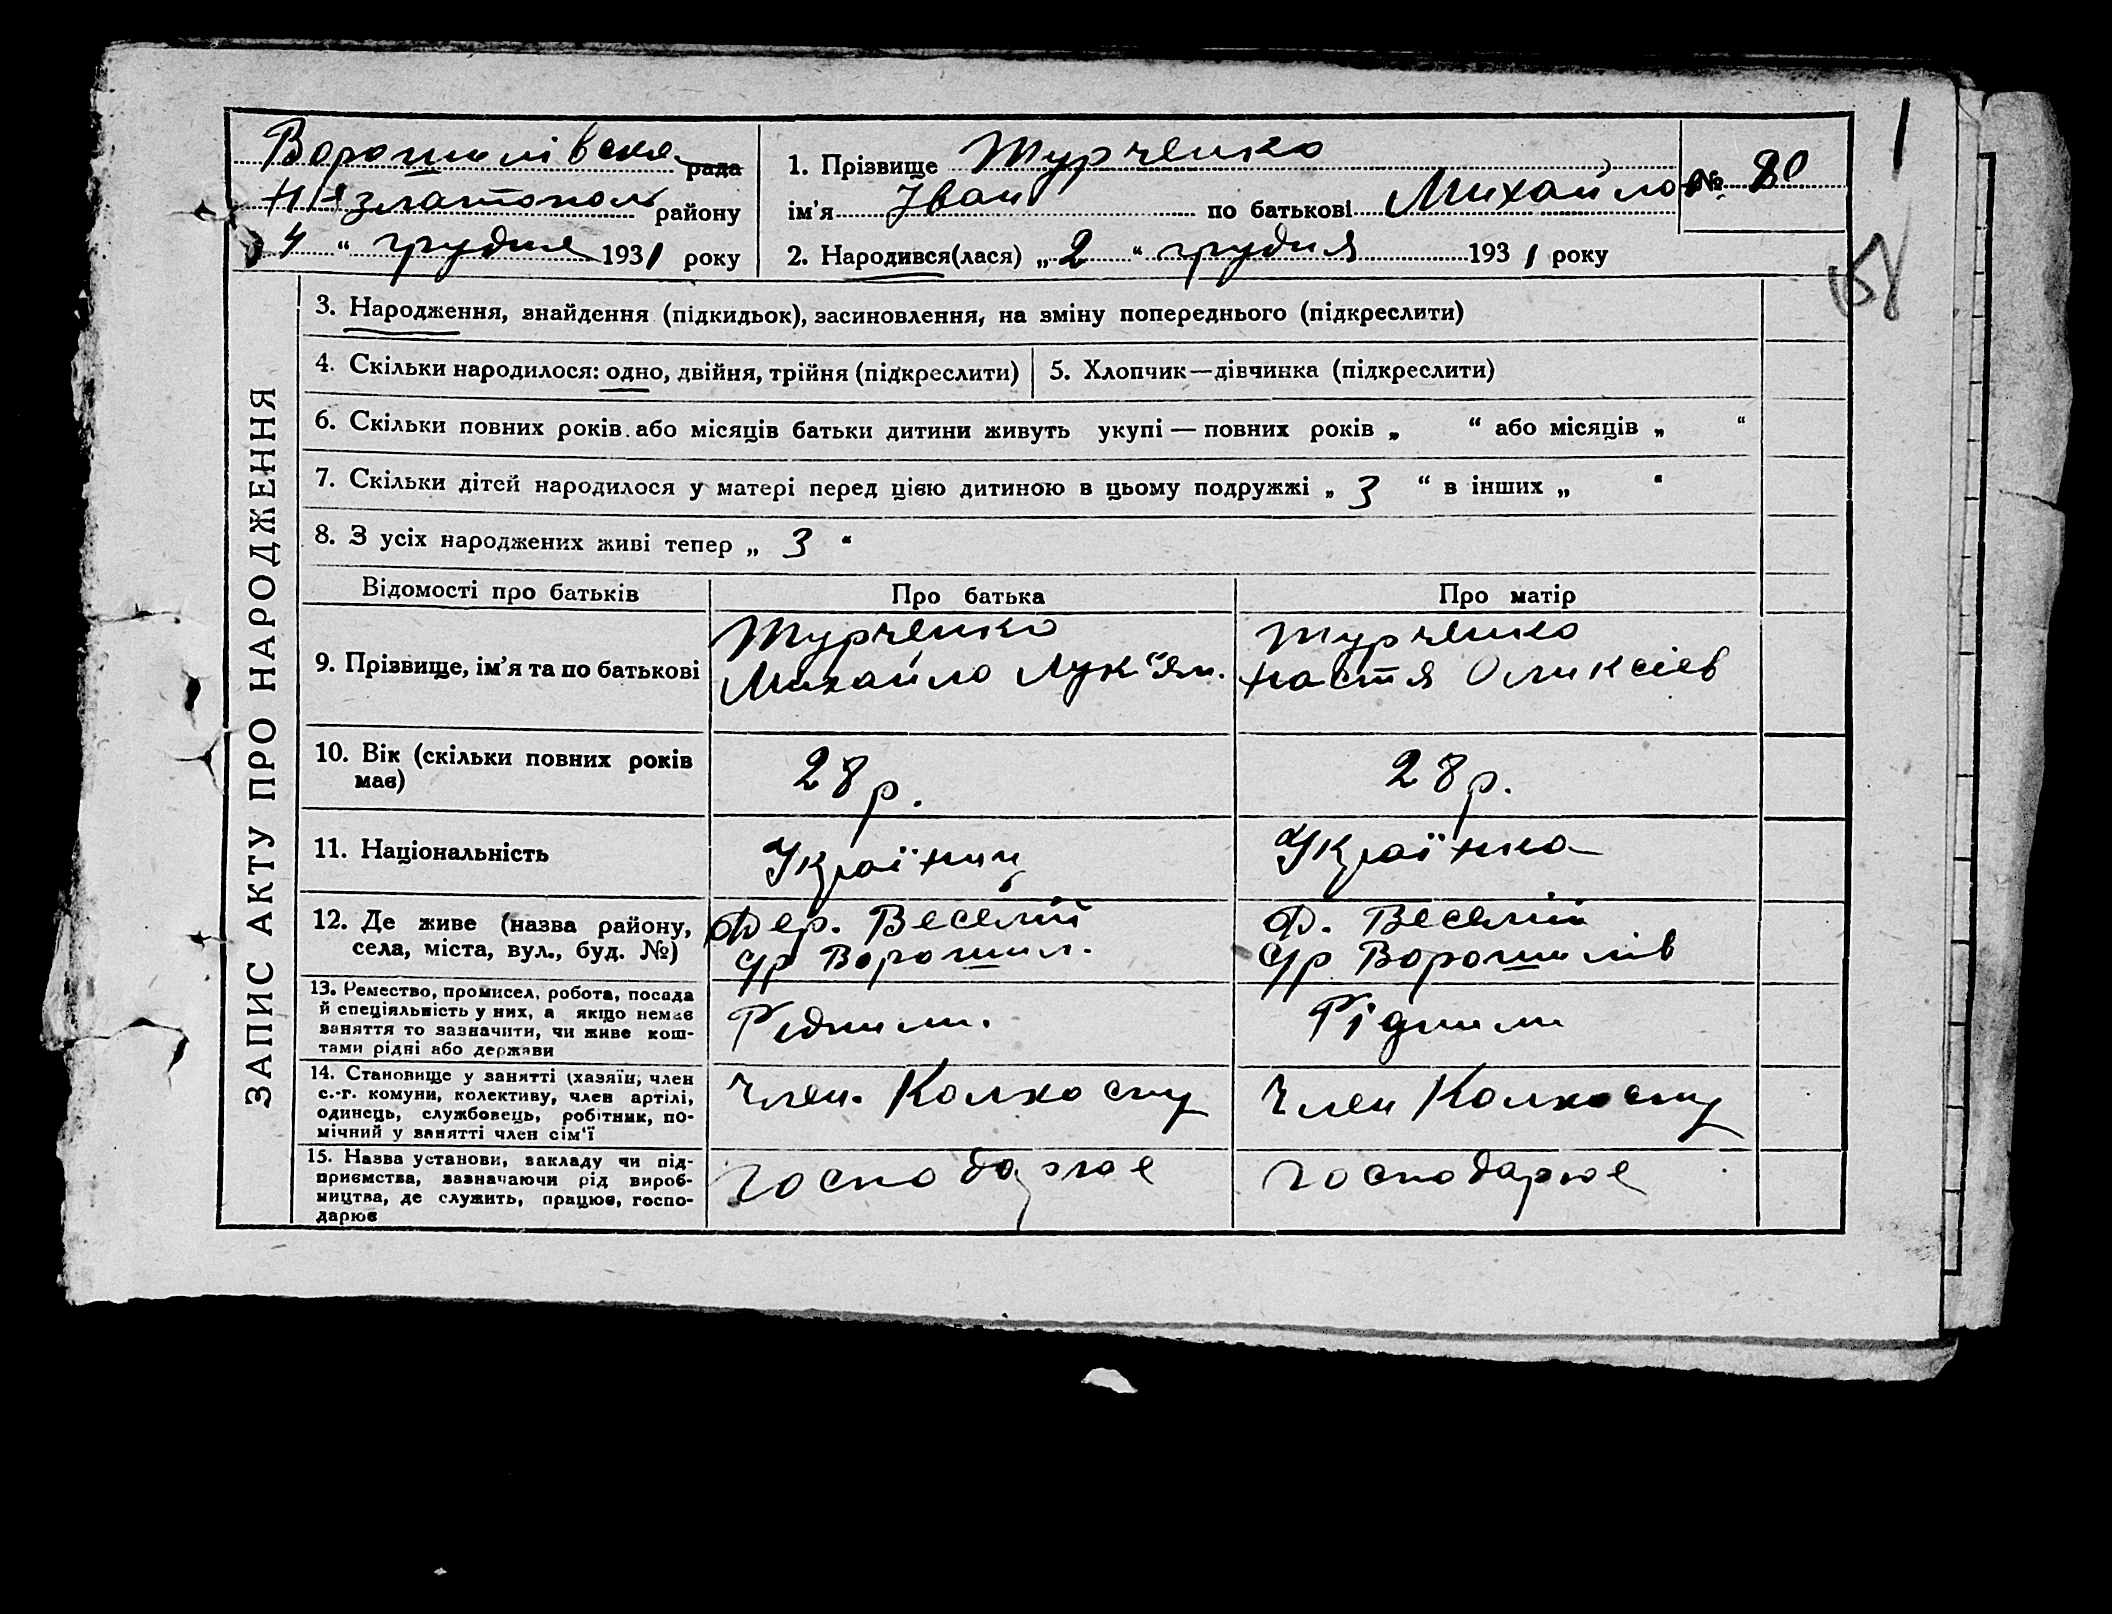 1
Ворошилівска рада
Н-Златополь району
4 " грудня 1931 року
1. Прізвище Турченко
№ 20
ім'я Іван по батькові Михайлов
2. Народився(лася) „ 2 " грудня 1931 року
58
ЗАПИС АКТУ ПРО НАРОДЖЕННЯ
3. Народження, знайдення (підкидьок), засиновлення, на зміну попереднього (підкреслити)
4. Скільки народилося: одно, двійня, трійня (підкреслити)
5. Хлопчик—дівчинка (підкреслити)
6. Скільки повних років або місяців батьки дитини живуть укупі — повних років „ " або місяців „ "
7. Скільки дітей народилося у матері перед цією дитиною в цьому подружжі „ 3 " в інших „ "
8. З усіх народжених живі тепер „ 3 "
Відомості про батьків
Про батька
Про матір
9. Прізвище, ім'я та по батькові
Турченко
Михайло Лук"ян.
Турченко
Настя Оликсіев
10. Вік (скільки повних років
має)
28 р.
28 р.
11. Національність
Україниц
Українка
12. Де живе (назва району,
села, міста, вул., буд. №)
Дер. Веселий
с/р Ворошил.
Д. Веселий
с/р Ворошилів
13. Ремество, промисел, робота, посада
й спеціяльність у них, а якщо немає
заняття то зазначити, чи живе кош-
тами рідні або держави
Рідними.
Рідними
14. Становище у занятті (хазяїн, член
с.-г. комуни, колективу, член артілі,
одинець, службовець, робітник, по-
мічний у занятті член сім'ї
Член. Колхоспу
Член Колхоспу
15. Назва установи, закладу чи під-
приємства, зазначаючи рід вироб-
ництва, де служить, працює, госпо-
дарює
господарює
господарює